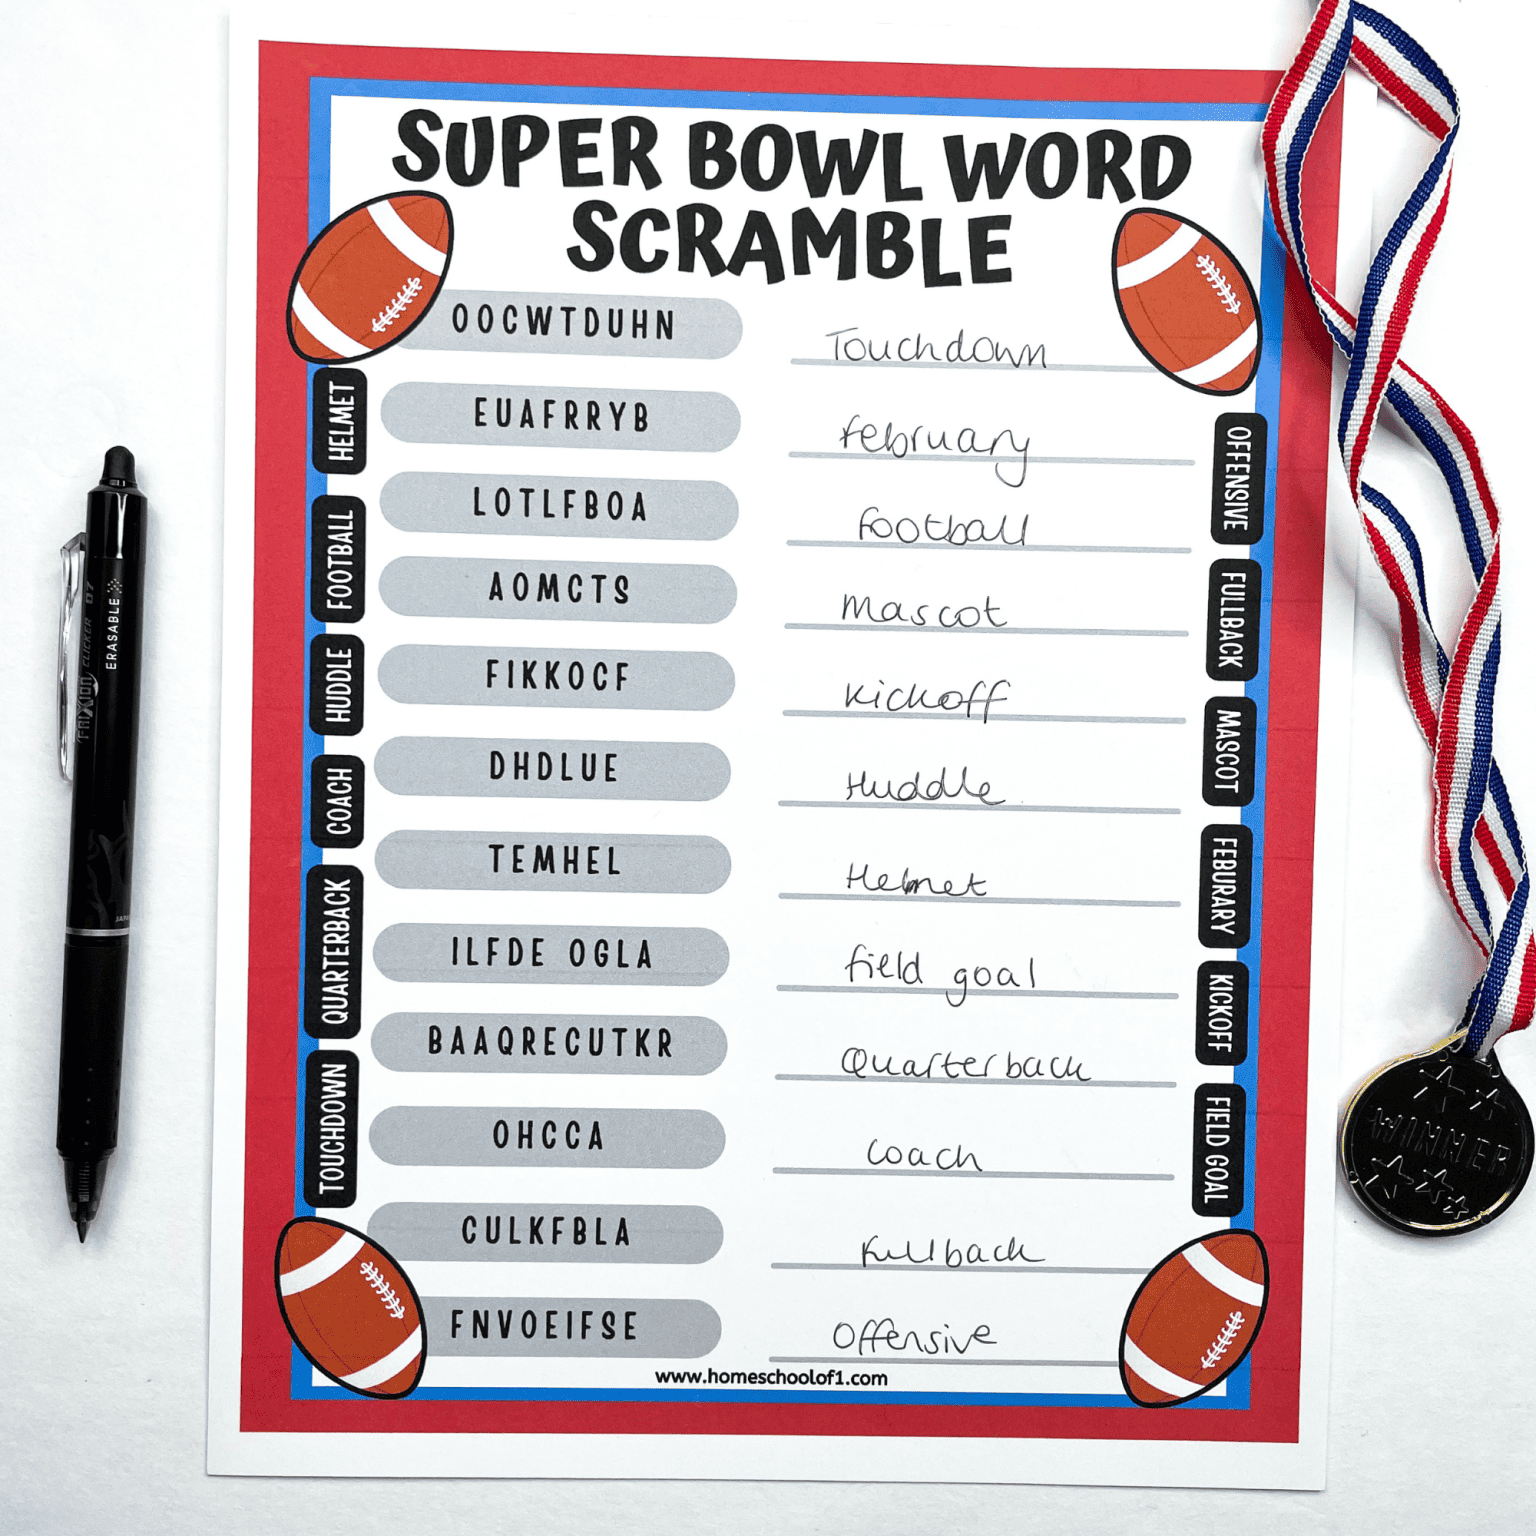 SUPER BOWL WORD
SCRAMBLE
OOCWTDUHN Touchdown
EUAFRRYB February
LOTLFBOA Football
AOMCTS Mascot
FIKKOCF Kickoff
DHDLUE Huddle
TEMHEL Helmet
ILFDE OGLA field goal
BAAQRECUTKR Quarterback
OHCCA Coach
CULKFBLA Fullback
FNVOEIFSE Offensive
www.homeschoolof1.com
HELMET
FOOTBALL
HUDDLE
COACH
QUARTERBACK
TOUCHDOWN
OFFENSIVE
FULLBACK
MASCOT
FEBURARY
KICKOFF
FIELD GOAL
FRIXION CLICKER 07
ERASABLE
WINNER